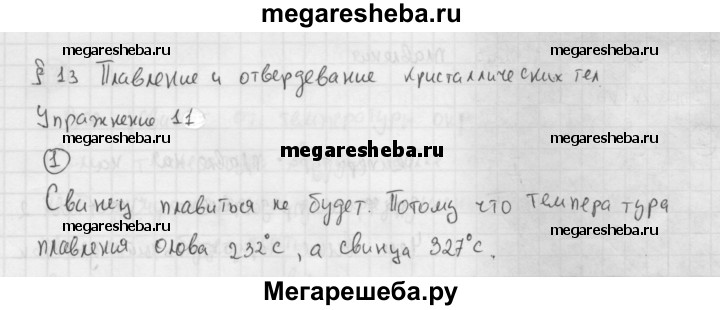 megaresheba.ru
megaresheba.ru megaresheba.ru
§ 13 Плавление и отвердевание кристаллических тел
Упражнение 11
megaresheba.ru
1
megaresheba.ru
megaresheba.ru
Свинец плавиться не будет. Потому что температура
плавления олова 232°С, а свинца 327°С.
megaresheba.ru megaresheba.ru
Мегарешеба.ру